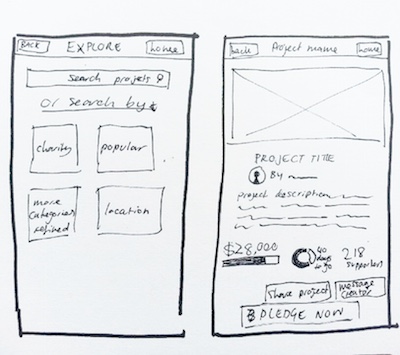 BACK EXPLORE home
search projects
or search by
charity popular
more
categories
refined
location
back Project name home
PROJECT TITLE
BY
project description
$28,000
40
days
to go
218
supporters
Share project
message
creator
PLEDGE NOW